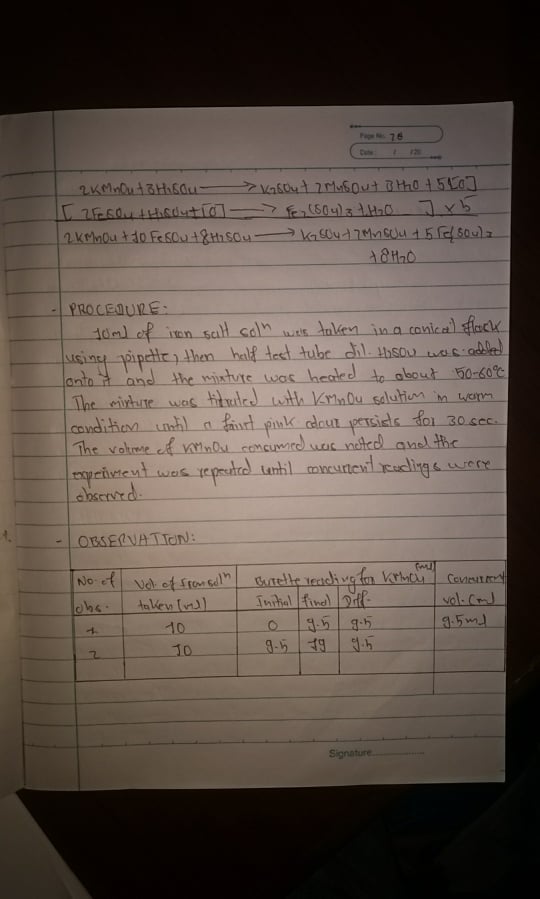 Page No. 78
Date: / /20
2KMnO4 + 3H2SO4 ⟶ K2SO4 + 2MnSO4 + 3H2O + 5[O]
[ 2FeSO4 + H2SO4 + [O] ⟶ Fe2(SO4)3 + H2O ] × 5
2KMnO4 + 10FeSO4 + 8H2SO4 ⟶ K2SO4 + 2MnSO4 + 5Fe2(SO4)3
+ 8H2O
- PROCEDURE:-
10ml of iron salt solⁿ was taken in a conical flask
using pipette, then half test tube dil. H2SO4 was added
onto it and the mixture was heated to about 50-60°C
The mixture was titrated with KMnO4 solution in warm
condition until a faint pink colour persists for 30 sec.
The volume of KMnO4 consumed was noted and the
experiment was repeated until concurrent readings were
observed.
1.
- OBSERVATION:
No. of Vol. of Iron solⁿ Burette reading for KMnO4 (ml) Concurrent
obs. taken (ml) Initial final Diff. vol. (ml)
1 10 0 9.5 9.5 9.5ml
2 10 9.5 19 9.5
Signature